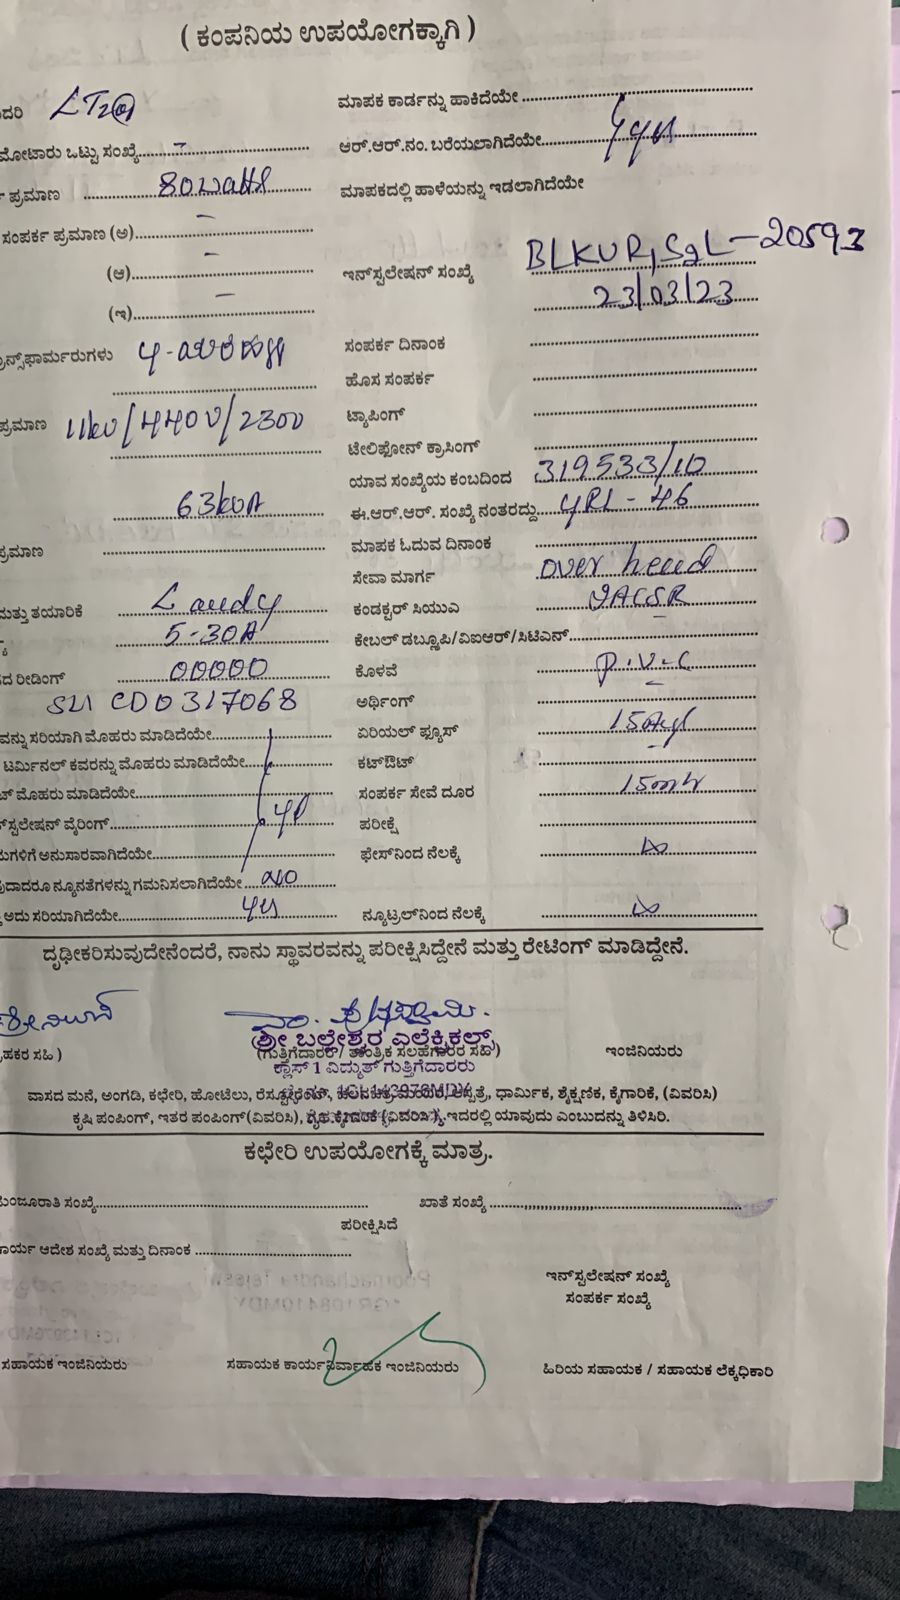 ( ಕಂಪನಿಯ ಉಪಯೋಗಕ್ಕಾಗಿ )
ದರಿ LT2(a) ಮಾಪಕ ಕಾರ್ಡನ್ನು ಹಾಕಿದೆಯೇ
ಮೋಟಾರು ಒಟ್ಟು ಸಂಖ್ಯೆ - ಆರ್.ಆರ್.ನಂ. ಬರೆಯಲಾಗಿದೆಯೇ
ಪ್ರಮಾಣ 80watts ಮಾಪಕದಲ್ಲಿ ಹಾಳೆಯನ್ನು ಇಡಲಾಗಿದೆಯೇ
ಸಂಪರ್ಕ ಪ್ರಮಾಣ (ಅ) -
(ಆ) - ಇನ್‌ಸ್ಟಲೇಷನ್ ಸಂಖ್ಯೆ BLKUR,SgL-20593
(ಇ) - 23/03/23
ನ್ಸ್‌ಫಾರ್ಮರುಗಳು ಸಂಪರ್ಕ ದಿನಾಂಕ
ಹೊಸ ಸಂಪರ್ಕ
ಪ್ರಮಾಣ 11kv/440v/230v ಟ್ಯಾಪಿಂಗ್
ಟೇಲಿಫೋನ್ ಕ್ರಾಸಿಂಗ್
ಯಾವ ಸಂಖ್ಯೆಯ ಕಂಬದಿಂದ 319533/10
63kvA ಈ.ಆರ್.ಆರ್. ಸಂಖ್ಯೆ ನಂತರದ್ದು YRL-46
ಪ್ರಮಾಣ ಮಾಪಕ ಓದುವ ದಿನಾಂಕ
ಸೇವಾ ಮಾರ್ಗ over head
ಮತ್ತು ತಯಾರಿಕೆ ಕಂಡಕ್ಟರ್ ಸಿಯುಎ
5-30A ಕೇಬಲ್ ಡಬ್ಲೂಪಿ/ವಿಐಆರ್/ಸಿಟಿಎಸ್
ದ ರೀಡಿಂಗ್ 00000 ಕೊಳವೆ P.V.C
CD0317068 ಅರ್ಥಿಂಗ್
ವನ್ನು ಸರಿಯಾಗಿ ಮೊಹರು ಮಾಡಿದೆಯೇ ಏರಿಯಲ್ ಫ್ಯೂಸ್
ಟರ್ಮಿನಲ್ ಕವರನ್ನು ಮೊಹರು ಮಾಡಿದೆಯೇ ಕಟ್‌ಔಟ್
ಮೊಹರು ಮಾಡಿದೆಯೇ ಸಂಪರ್ಕ ಸೇವೆ ದೂರ
ಸ್ಟಲೇಷನ್ ವೈರಿಂಗ್ ಪರೀಕ್ಷೆ
ಗಳಿಗೆ ಅನುಸಾರವಾಗಿದೆಯೇ ಫೇಸ್‌ನಿಂದ ನೆಲಕ್ಕೆ ∞
ದಾದರೂ ನ್ಯೂನತೆಗಳನ್ನು ಗಮನಿಸಲಾಗಿದೆಯೇ no
ಅದು ಸರಿಯಾಗಿದೆಯೇ yes ನ್ಯೂಟ್ರಲ್‌ನಿಂದ ನೆಲಕ್ಕೆ ∞
ದೃಢೀಕರಿಸುವುದೇನೆಂದರೆ, ನಾನು ಸ್ಥಾವರವನ್ನು ಪರೀಕ್ಷಿಸಿದ್ದೇನೆ ಮತ್ತು ರೇಟಿಂಗ್ ಮಾಡಿದ್ದೇನೆ.
ಶ್ರೀ ಬಲ್ಲೇಶ್ವರ ಎಲೆಕ್ಟ್ರಿಕಲ್ಸ್
ಹಕರ ಸಹಿ ) (ಗುತ್ತಿಗೆದಾರರ / ತಾಂತ್ರಿಕ ಸಲಹೆಗಾರರ ಸಹಿ) ಇಂಜಿನಿಯರು
ಕ್ಲಾಸ್ 1 ವಿದ್ಯುತ್ ಗುತ್ತಿಗೆದಾರರು
ವಾಸದ ಮನೆ, ಅಂಗಡಿ, ಕಛೇರಿ, ಹೋಟೆಲು, ಆಸ್ಪತ್ರೆ, ಧಾರ್ಮಿಕ, ಶೈಕ್ಷಣಿಕ, ಕೈಗಾರಿಕೆ, (ವಿವರಿಸಿ)
ಕೃಷಿ ಪಂಪಿಂಗ್, ಇತರ ಪಂಪಿಂಗ್(ವಿವರಿಸಿ), ಗೃಹ ಕೈಗಾರಿಕೆ (ವಿವರಿಸಿ ) ಇದರಲ್ಲಿ ಯಾವುದು ಎಂಬುದನ್ನು ತಿಳಿಸಿರಿ.
ಕಛೇರಿ ಉಪಯೋಗಕ್ಕೆ ಮಾತ್ರ.
ಮಂಜೂರಾತಿ ಸಂಖ್ಯೆ ಖಾತೆ ಸಂಖ್ಯೆ
ಪರೀಕ್ಷಿಸಿದೆ
ಕಾರ್ಯ ಆದೇಶ ಸಂಖ್ಯೆ ಮತ್ತು ದಿನಾಂಕ
ಇನ್‌ಸ್ಟಲೇಷನ್ ಸಂಖ್ಯೆ
ಸಂಪರ್ಕ ಸಂಖ್ಯೆ
ಸಹಾಯಕ ಇಂಜಿನಿಯರು ಸಹಾಯಕ ಕಾರ್ಯನಿರ್ವಾಹಕ ಇಂಜಿನಿಯರು ಹಿರಿಯ ಸಹಾಯಕ / ಸಹಾಯಕ ಲೆಕ್ಕಧಿಕಾರಿ